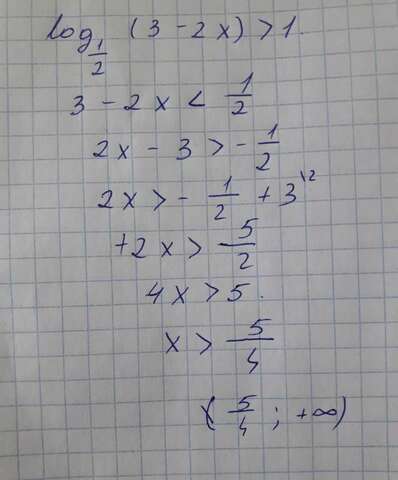 log_{1/2} (3 - 2x) > 1.
3 - 2x < 1/2
2x - 3 > - 1/2
2x > - 1/2 + 3^{\2
+2x > 5/2
4x > 5.
x > 5/4
(5/4 ; +∞)